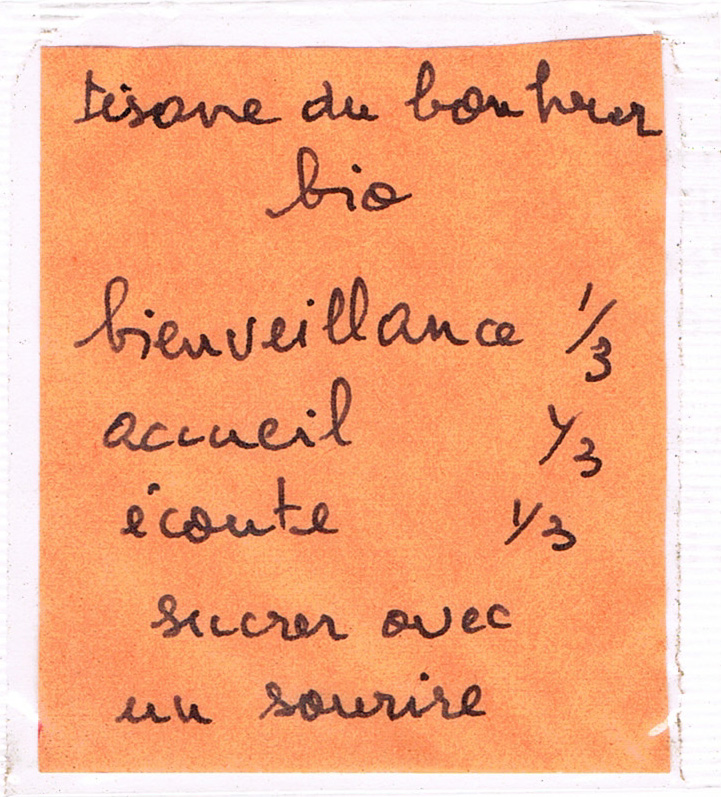 tisane du bonheur
bio
bienveillance 1/3
accueil 1/3
écoute 1/3
sucrer avec
un sourire